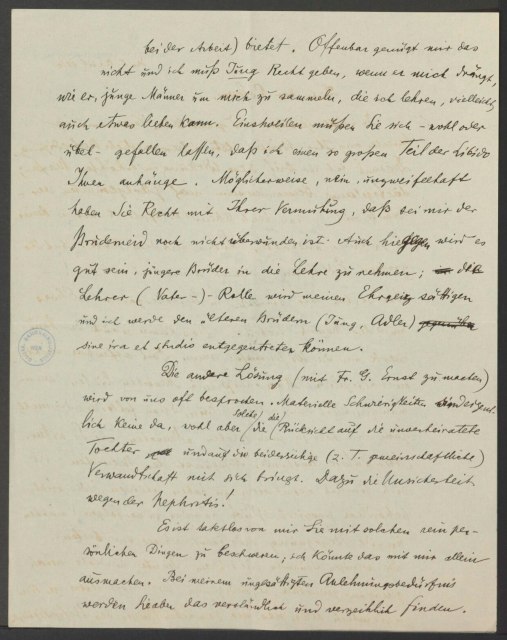 bei der Arbeit) bietet. Offenbar genügt mir das
nicht und ich muß Jung Recht geben, wenn er mich drängt,
wie er, junge Männer um mich zu sammeln, die ich lehren, vielleicht
auch etwas lieben kann. Einstweilen müssen Sie sich - wohl oder
übel - gefallen lassen, daß ich einen so großen Teil der Libido
Ihnen anhänge. Möglicherweise, nein, unzweifelhaft
haben Sie Recht mit Ihrer Vermutung, daß bei mir der
Bruderneid noch nicht überwunden ist. Auch hiegegen wird es
gut sein, jüngere Brüder in die Lehre zu nehmen; die
Lehrer (Vater-)-Rolle wird meinen Ehrgeiz sättigen
und ich werde den älteren Brüdern (Jung, Adler)
sine ira et studio entgegentreten können.
Die andere Lösung (mit Fr. G. Ernst zu machen)
wird von uns oft besprochen. Materielle Schwierigkeiten sind
lich keine da, wohl aber solche, die die Rücksicht auf die unverheiratete
Tochter und auf die beiderseitige (z. T. gemeinschaftliche)
Verwandtschaft mit sich bringt. Dazu die Unsicherheit
wegen der Nephritis!
Es ist taktlos von mir Sie mit solchen rein per-
sönlichen Dingen zu beschweren; ich könnte das mit mir allein
ausmachen. Bei meinem ungesättigten Anlehnungsbedürfnis
werden Sie aber das verständlich und verzeihlich finden.